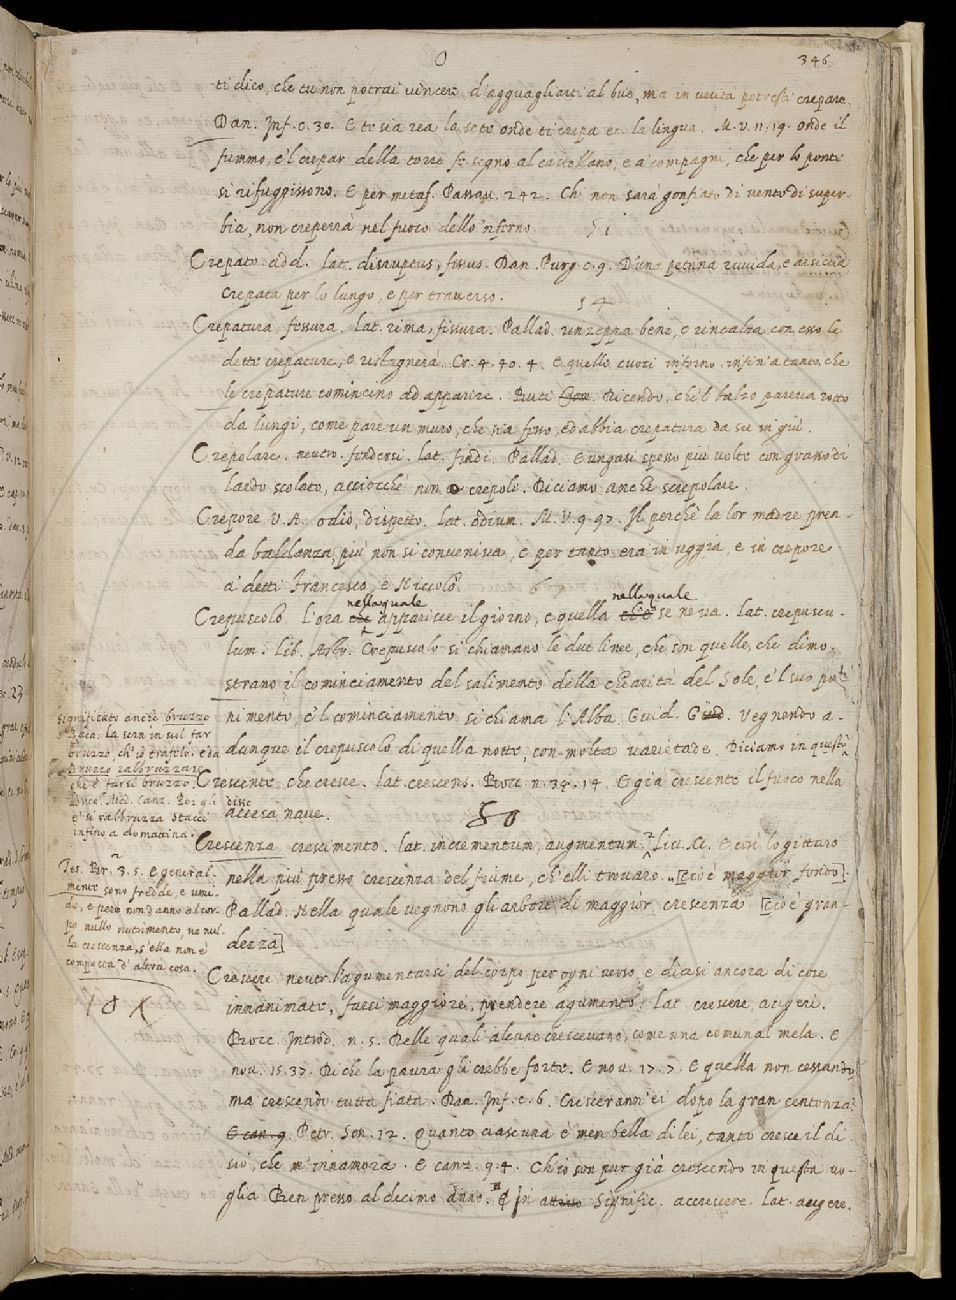 346
ti dico, che tu non potrai vincer d'agguagliarti al bue, ma in verità potresti crepare.
Dan. Inf. c. 30. E te sia rea la sete onde ti crepa ec. la lingua. M. V. 11. 19. onde il
fummo, e 'l crepar della torre fe segno al castellano, e a' compagni, che per lo ponte
si rifuggissono. E per metaf. Passav. 242. Chi non sarà gonfiato di vento di super-
bia, non creperrà nel fuoco dello 'nferno.
Crepato. add. lat. disruptus, fissus. Dan. Purg. c. 9. D'una petrina ruvida, e arsiccia
Crepata per lo lungo, e per traverso.
54
Crepatura. fessura. Lat. rima, fissura. Pallad. unzeppa bene, e rincalza con esso le
dette crepature, e ristrignerà. Cr. 4. 40. 4. E quello cuoci infino infin' a tanto, che
le crepature comincino ad apparire. Buti. Dicendo, che 'l balzo pareva rotto
da lungi, come pare un muro, che sia fesso, ed abbia crepatura da su in giù.
Crepolare. neutro. fendersi. lat. findi. Pallad. E ungasi spesso più volte con grasso di
lardo scolato, acciocchè non crepolo. Diciamo anche screpolare.
Crepore V. A. odio, dispetto. lat. odium. M. V. 9. 97. Il perchè la lor madre pren-
da baldanza, più non si conveniva, e per tanto era in uggia, e in crepore
a' detti Francesco, e Niccolò.
nella quale nella quale
Crepuscolo. L'ora che apparisce il giorno, e quella che se ne va. lat. crepuscu-
lum. lib. Astr. Crepuscolo si chiamano le due linee, che con quelle, che dimo-
strano il cominciamento del salimento della chiarità del Sole, e 'l suo po-
nimento, e 'l cominciamento si chiama l'Alba. Guid. G. Vegnendo a-
dunque il crepuscolo di quella notte, con molta varietade. Diciamo in questo
significato anche bruzzo
Bocc. La sera in sul far
bruzzo, ch' io trafelo: e da
Bruzzo rabbruzzare
che è farsi bruzzo.
Lor. Med. Canz. Poi gli disse
e' si rabbruzza Stacci
infino a domattina.
Crescente. che cresce. lat. crescens. Bocc. n. 35. 14. E già crescente il fuoco nella
accesa nave.
50
Crescenza crescimento. lat. incrementum, augmentum. Liv. M. E così lo gittaro
nella più presso crescenza del fiume, ch'elli trovaro. [cioè maggior fondo].
Pallad. Nella quale vegnono gli arbori di maggior crescenza [cioè gran-
dezza]
Tes. Br. 3. 5. E general-
mente sono fredde, e umi-
de, e però non danno al cor-
po nullo nutrimento, ne nul-
la crescenza, s'ella non è
composta d' altra cosa.
10
Crescere neutr. l'agumentarsi del corpo per ogni verso, e dicesi ancora di cose
innanimate, farsi maggiore, prendere agumento. lat. crescere, augeri.
Bocc. Introd. n. 5. Delle quali alcune crescevano, come una comunal mela. E
nov. 15. 37. Di che la paura gli crebbe forte. E nov. 17. 7. E quella non cessando,
ma crescendo tutta fiata. Dan. Inf. c. 6. Crescerann' ei dopo la gran sentenza.
E can. 9. Petr. Son. 12. Quanto ciascuna è men bella di lei, tanto cresce il di
sio, che m'innamora. E canz. 9. 4. Ch'io son pur già crescendo in questa vo-
glia Ben presso al decimo anno. In signific. accrescere. lat. augere.